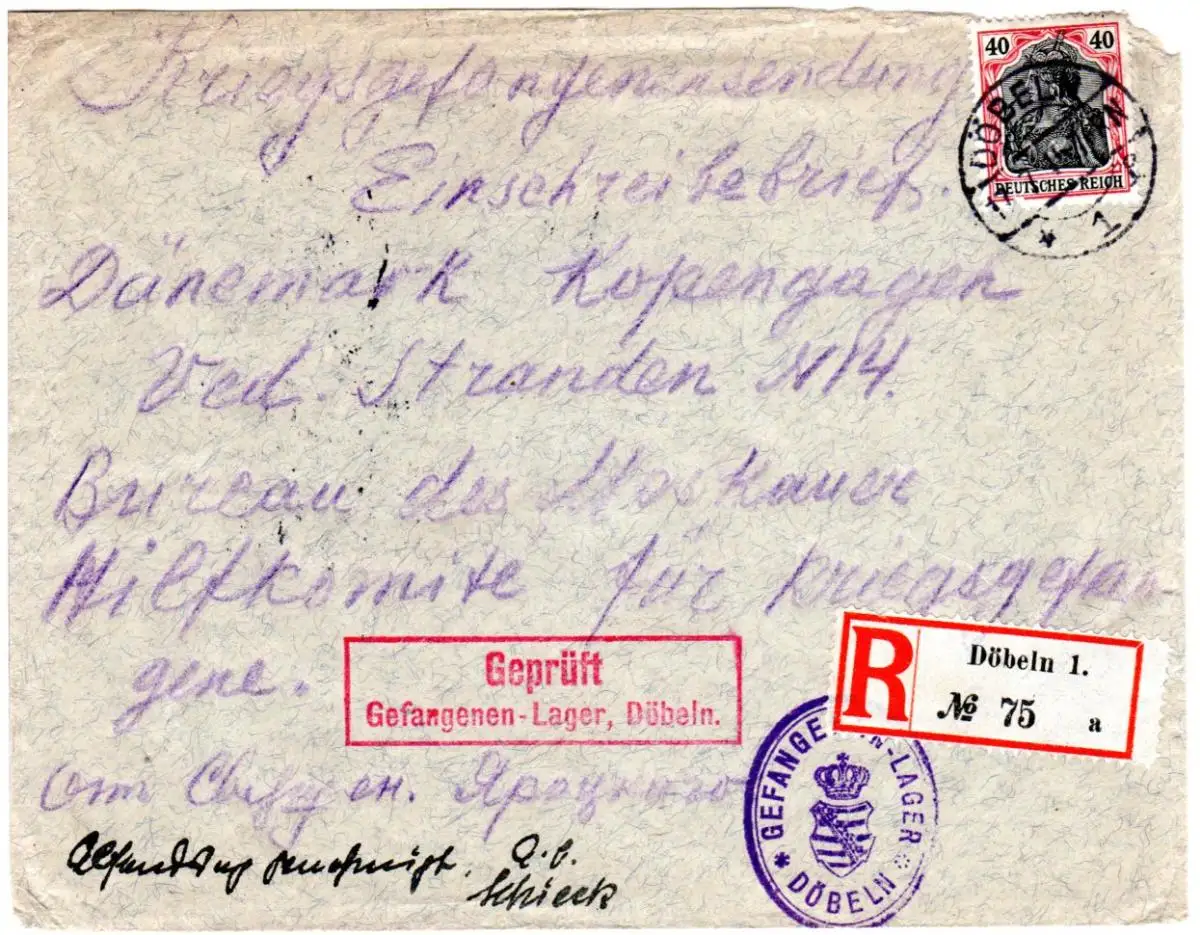 Kriegsgefangeninsendung
40 40
DEUTSCHES REICH
DÖBELN
* 1
Einschreibebrief.
Dänemark Kopengagen
Ved. Stranden N14.
Bureau des Moskauer
Hilfkomite für Kriegsgefan
gene.
Geprüft
Gefangenen-Lager, Döbeln.
R
Döbeln 1.
№ 75 a
GEFANGENEN-LAGER
* DÖBELN *
отъ
genehmigt.
Schieck